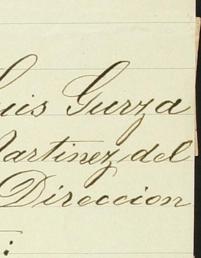 Luis Gurza
Martinez del
Direccion